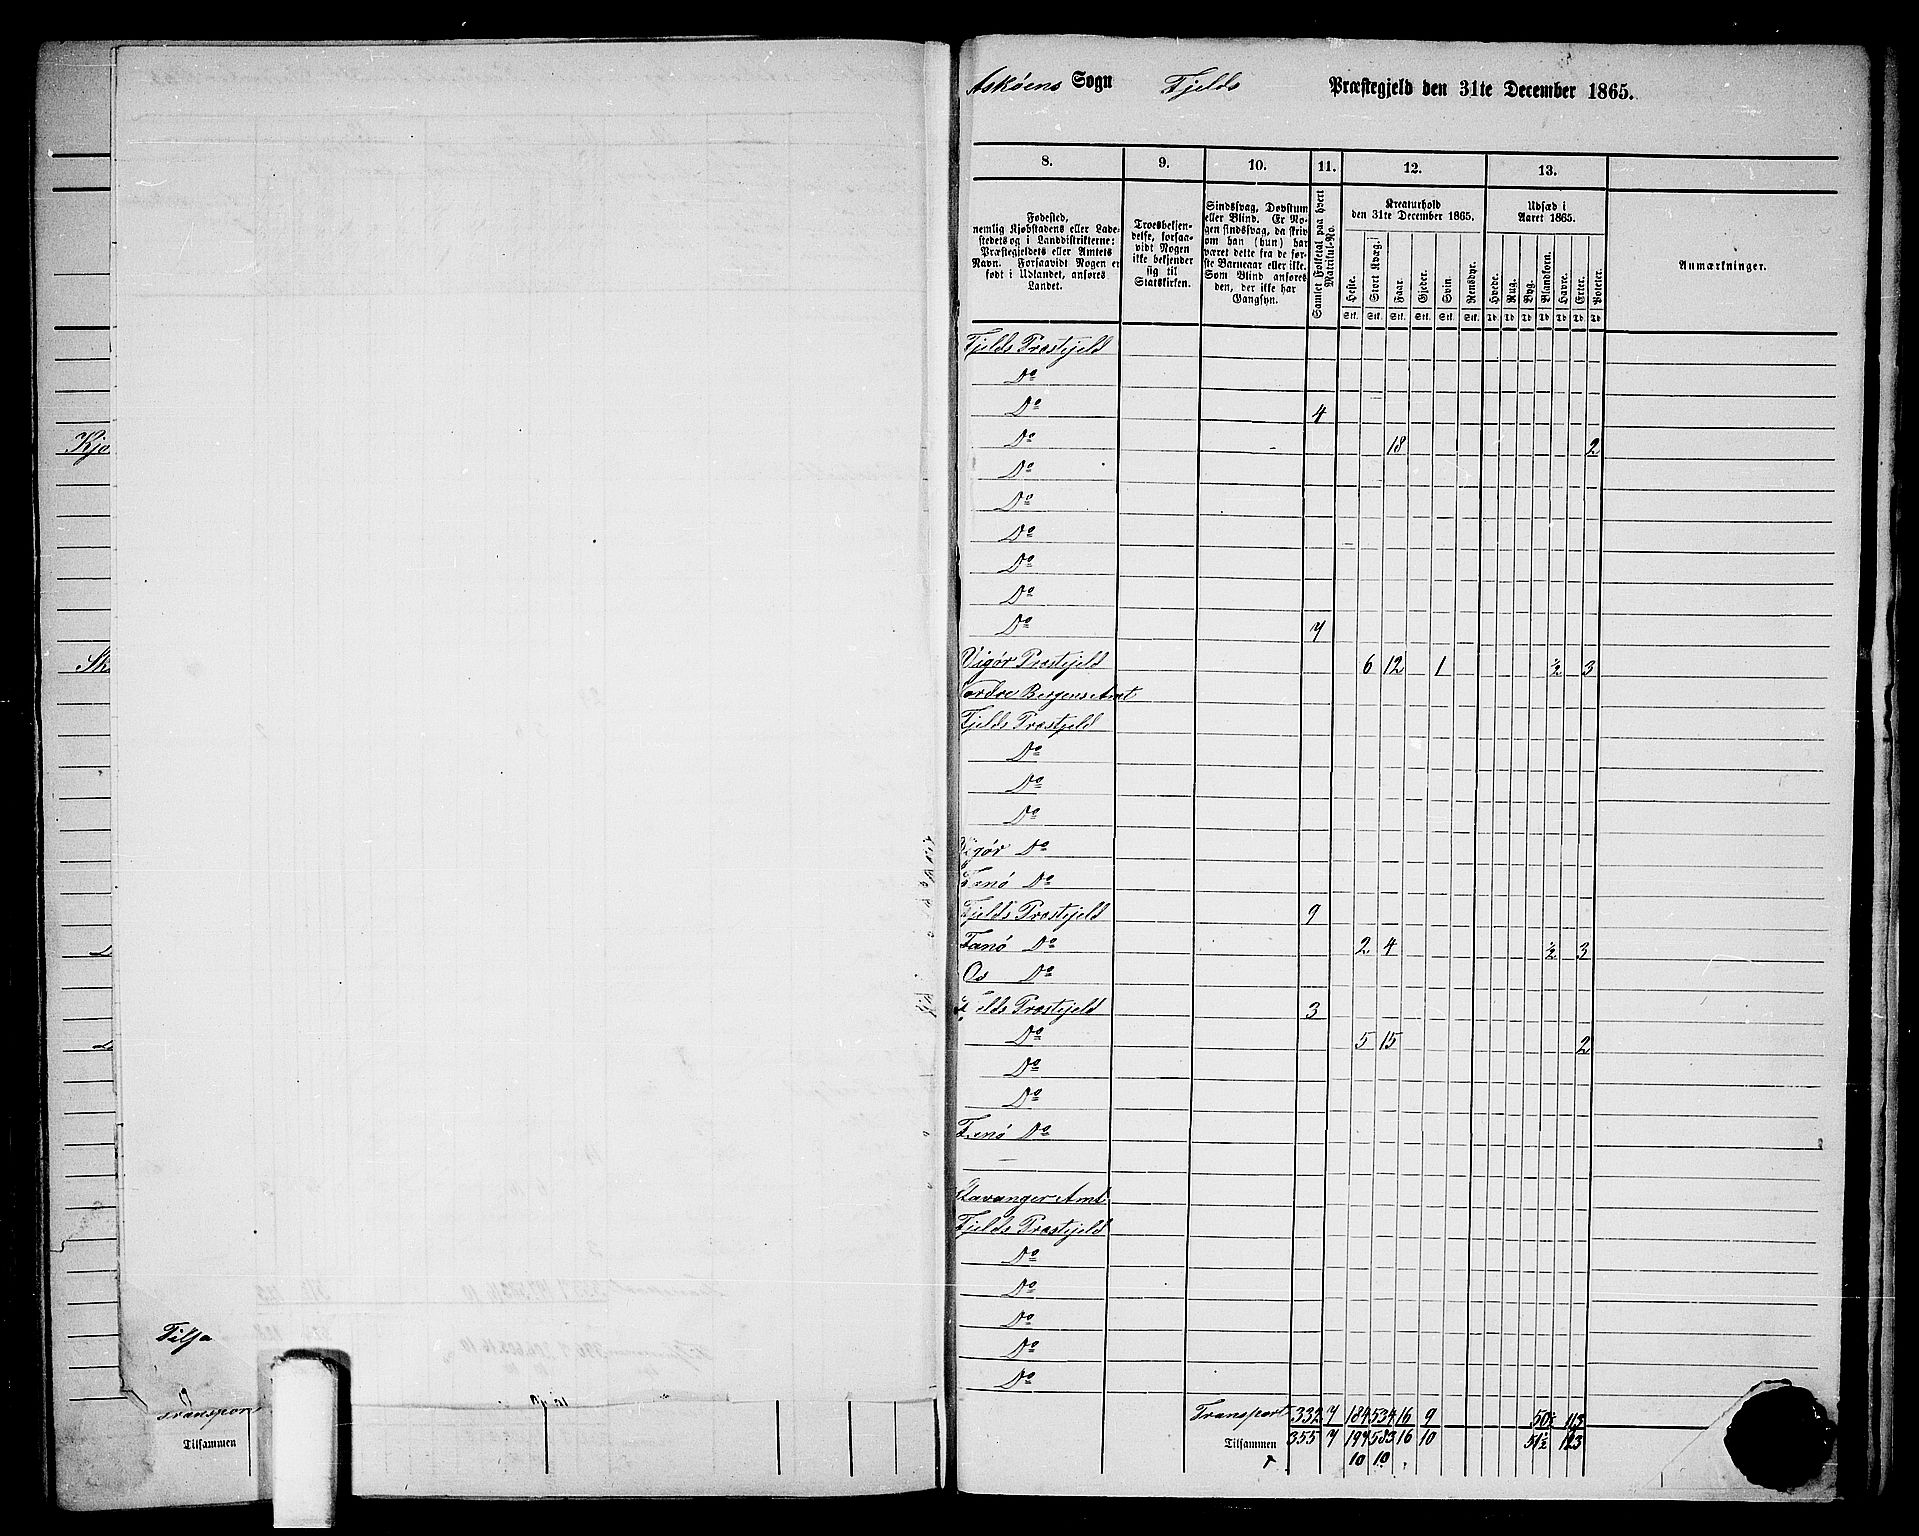 Kjo
Sk
Tilsa
Transpor
Tilsammen
Askøens Sogn Fjelds Præstegjeld den 31te December 1865.
8. 9. 10. 11. 12. 13.
Fødested,
nemlig Kjøbstadens eller Lade-
stedets og i Landdistrikterne:
Præstegjeldets eller Amtets
Navn. Forsaavidt Nogen er
født i Udlandet, anføres
Landet.
Troesbekjen-
delse, forsaa-
vidt Nogen
ikke bekjender
sig til
Statskirken.
Sindssvag, Døvstum
eller Blind. Er No-
gen sindssvag, da skriv
om han (hun) har
været dette fra de før-
ste Barneaar eller ikke.
Som Blind anføres
den, der ikke har
Gangsyn.
Samlet Folketal paa hvert
Matrikul-No.
Kreaturhold
den 31te December 1865.
Heste. Stort Kvæg. Faar. Gjeder. Svin. Rensdyr.
Stk. Stk. Stk. Stk. Stk. Stk.
Udsæd i
Aaret 1865.
Hvede. Rug. Byg. Blandkorn. Havre. Erter. Poteter.
Anmærkninger.
Fjelds Præstejeld
Do
Do 4
Do 18 2
Do
Do
Do
Do
Do
Do 7
Vigør Præstejeld 6 12 1 ½ 3
Nordre Bergens Amt
Fjelds Præstjeld
Do
Do
Do
Vigør Do
Fanø Do
Fjelds Præstejeld 9
Fanø Do 2 4 ½ 3
Os Do
Fjelds Præstejeld 3
Do 5 15 2
Do
Do
Fanø Do
Stavanger Amt
Fjelds Præstejeld
Do
Do
Do
Do
Do
Transport 332 7 184 534 16 9 50½ 113
Tilsammen 355 7 197 583 16 10 51½ 123
10 10